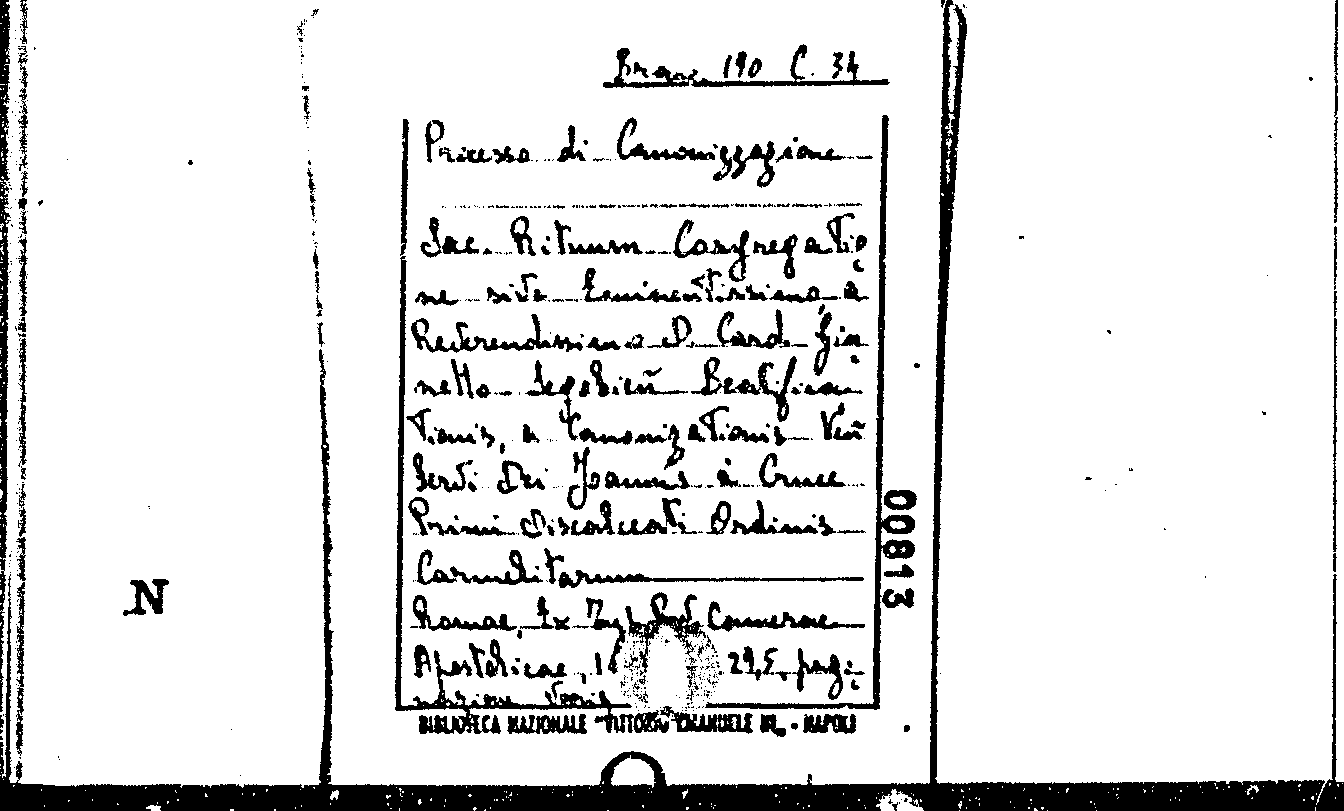 Branc. 190 C. 34
Processo di Canonizzazione
Sac. Rituum Congregatio
ne sive Eminentissimo, &
Reverendissimo D. Card. Gin
netto Segobień Beatifica
tionis, & Canonizationis Veń
Servi Dei Joannis à Cruce
Primi Discalceati Ordinis
Carmelitarum
Romae, Ex Typ. Rev. Camerae
Apostolicae, 29,5, pagi
nazione varia
BIBLIOTECA NAZIONALE "VITTORIO EMANUELE III" - NAPOLI
00813
N